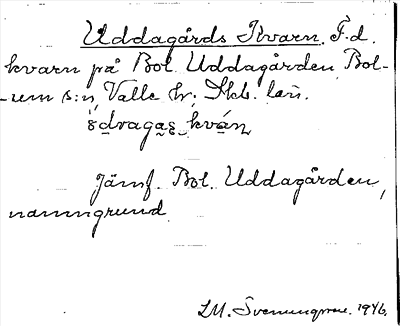 Uddagårds Kvarn. F.d.
kvarn på Bol. Uddagården, Bol-
-um s:n, Valle hr; Skb. län.
ŏ́dvagaṣ kván
Jämf. Bol. Uddagården,
namngrund.
LM. 1946.